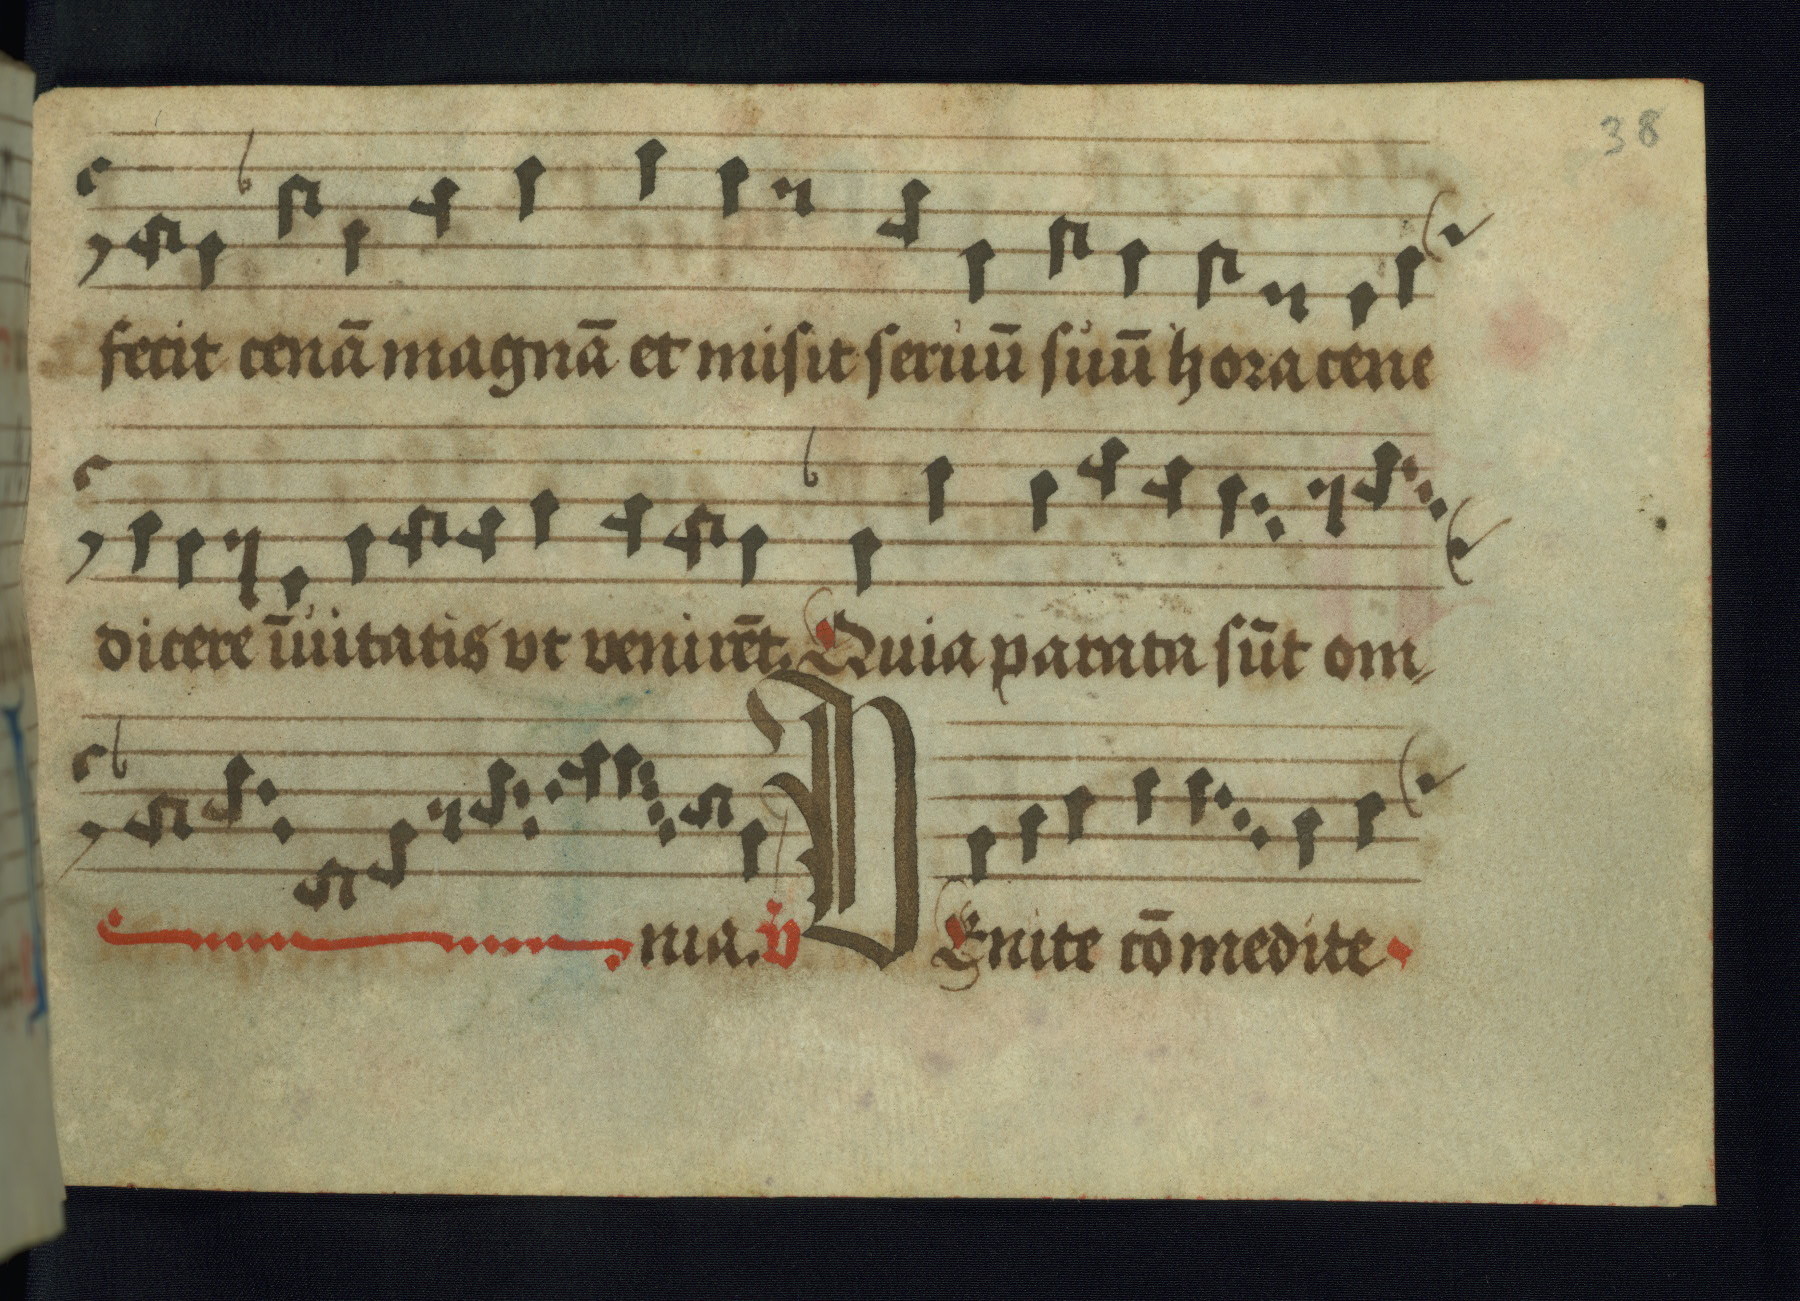 38
fecit cenā magnā et misit seruū suū hora cene
dicere īuitatis vt venirēt. Quia parata sūt om
nia. v̊ VEnite cōmedite